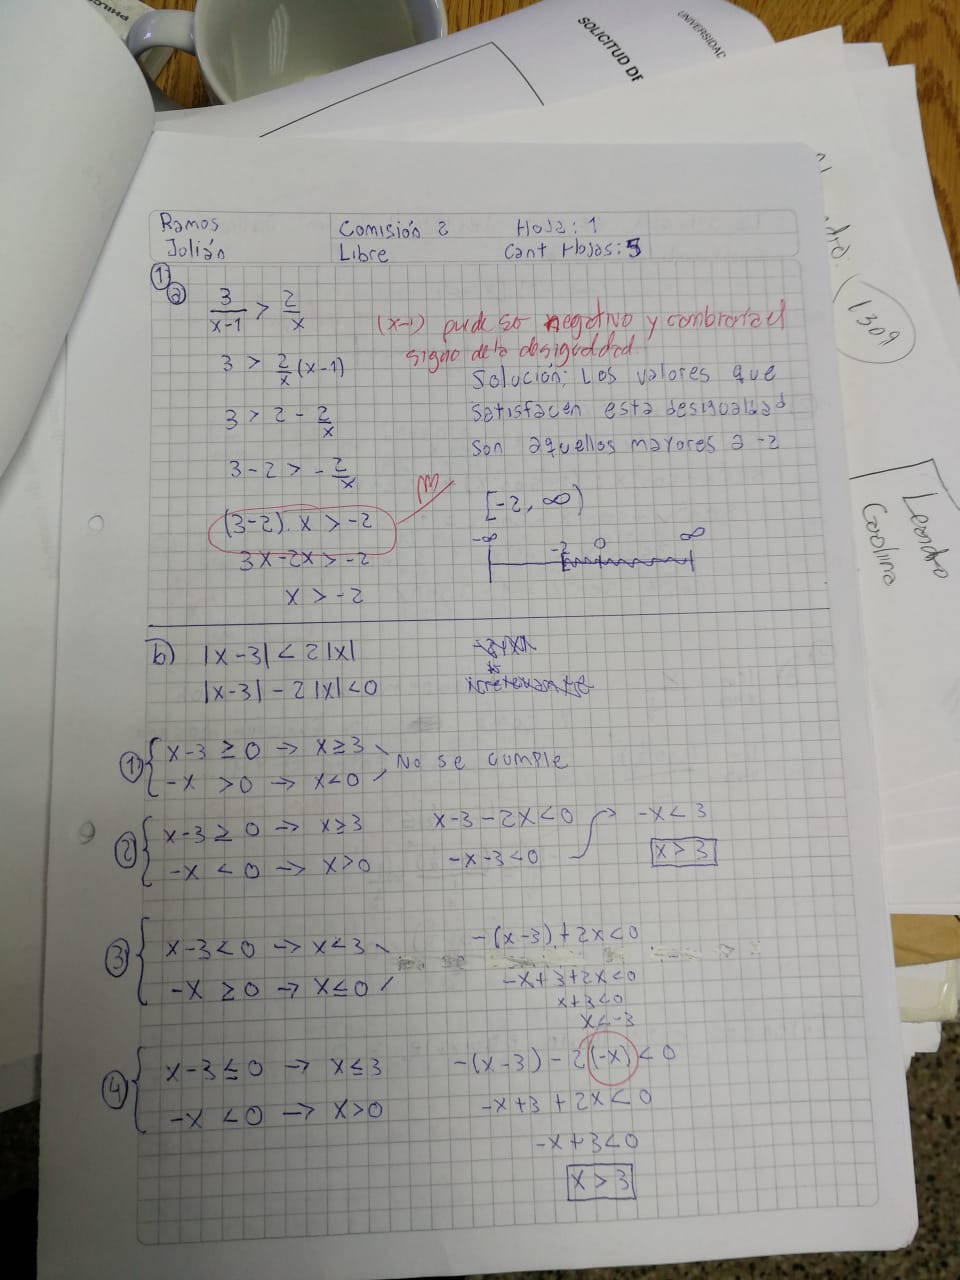 PHILCO
SOLICITUD DE
UNIVERSIDAD
1309
Leandro
Carolina
Ramos
Julián
Comisión 2
Libre
Hoja: 1
Cant Hojas: 5
1)
a)
3/(x-1) > 2/x
3 > 2/x (x-1)
3 > 2 - 2/x
3-2 > - 2/x
(3-2). x > -2
3x-2x > -2
x > -2
(x-1) puede ser negativo y cambiaría el
signo de la desigualdad.
Solución: Los valores que
satisfacen esta desigualdad
son aquellos mayores a -2
[-2, ∞)
-∞ -2 0 ∞
b) |x-3| < 2|x|
|x-3| - 2|x| < 0
1) x-3 ≥ 0 → x ≥ 3
-x > 0 → x < 0
No se cumple
2) x-3 ≥ 0 → x ≥ 3
-x < 0 → x > 0
x-3-2x < 0
-x-3 < 0
-x < 3
x > 3
3) x-3 < 0 → x < 3
-x ≥ 0 → x ≤ 0
-(x-3)+2x < 0
-x+3+2x < 0
x+3 < 0
x < -3
4) x-3 ≤ 0 → x ≤ 3
-x < 0 → x > 0
-(x-3) - 2(-x) < 0
-x+3+2x < 0
-x+3 < 0
x > 3